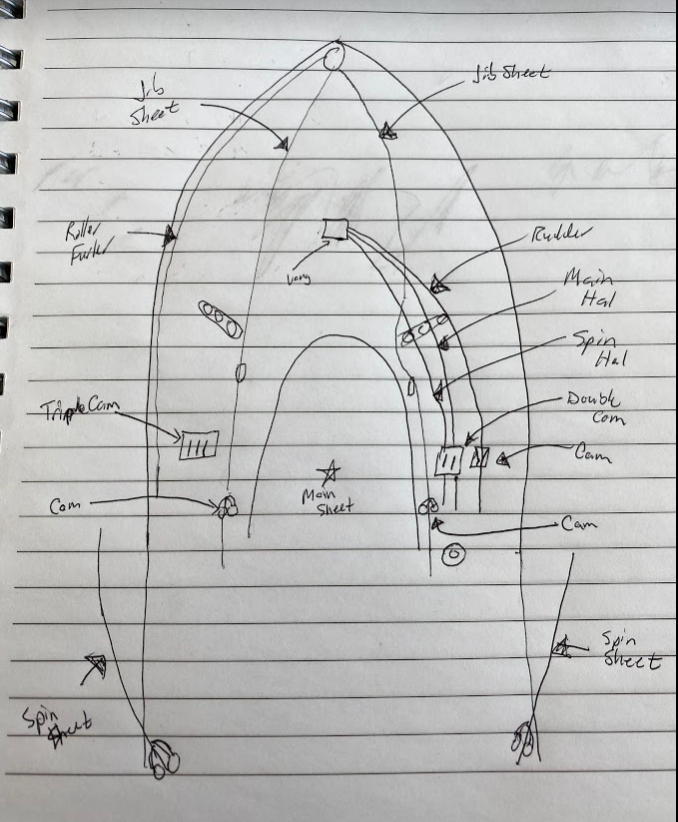 Jib
Sheet
Jib Sheet
Roller
Furler
Vang
Rudder
Main
Hal
Spin
Hal
Triple Cam
Double
Cam
Cam
Cam
Main
Sheet
Cam
Spin
Sheet
Spin
Sheet